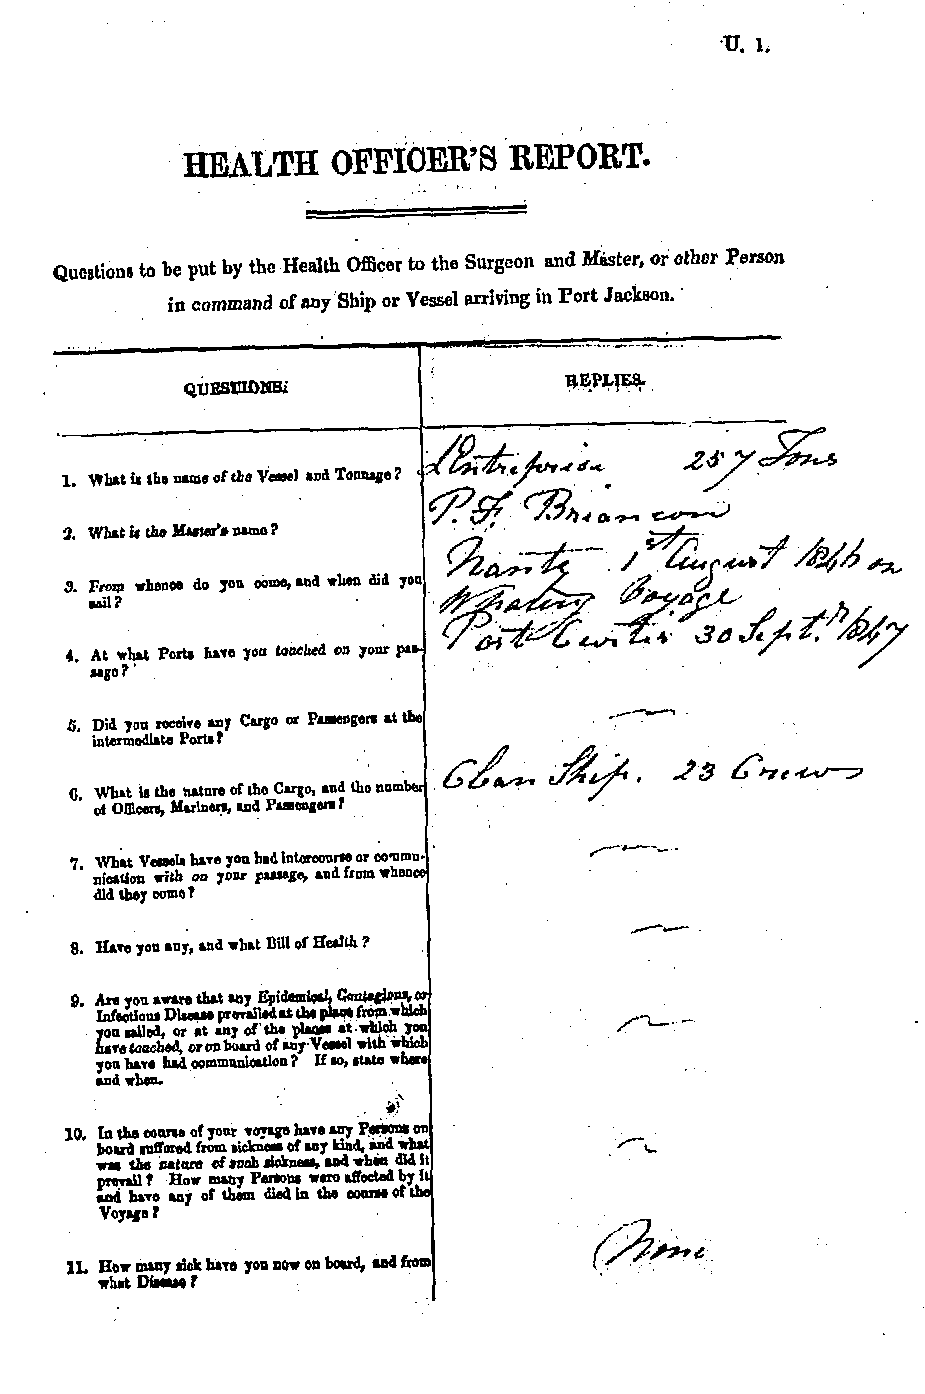 U. 1.
HEALTH OFFICER'S REPORT.
Questions to be put by the Health Officer to the Surgeon and Master, or other Person
in command of any Ship or Vessel arriving in Port Jackson.
QUESTIONS.
REPLIES.
1. What is the name of the Vessel and Tonnage?
L'Entreprise 257 Tons
2. What is the Master's name?
P. F. Briancon
3. From whence do you come, and when did you
sail?
Nantz 1st August 1846 on
Whaling Voyage
4. At what Ports have you touched on your pas-
sage?
Port Curtis 30 Septr. 1847
5. Did you receive any Cargo or Passengers at the
intermediate Ports?
6. What is the nature of the Cargo, and the number
of Officers, Mariners, and Passengers?
Clean Ship. 23 Crews
7. What Vessels have you had intercourse or commu-
nication with on your passage, and from whence
did they come?
8. Have you any, and what Bill of Health?
9. Are you aware that any Epidemical, Contagious, or
Infectious Disease prevailed at the place from which
you sailed, or at any of the places at which you
have touched, or on board of any Vessel with which
you have had communication? If so, state where
and when.
10. In the course of your voyage have any Persons on
board suffered from sickness of any kind, and what
was the nature of such sickness, and when did it
prevail? How many Persons were affected by it
and have any of them died in the course of the
Voyage?
11. How many sick have you now on board, and from
what Disease?
None